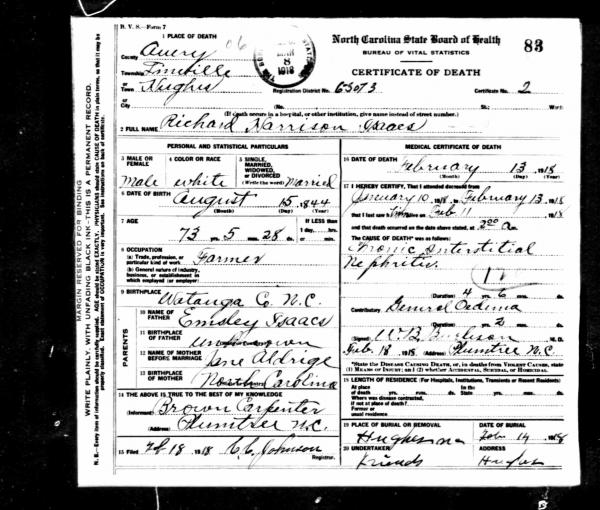 B. V. S.—Form 7
1 PLACE OF DEATH
County Avery 06
Township Linville
or
Town Hughes
or
City
North Carolina State Board of Health 83
BUREAU OF VITAL STATISTICS
CERTIFICATE OF DEATH
8
1918
Registration District No. Certificate No. 2
(No. St.; Ward)
(If death occurs in a hospital, or other institution, give name instead of street number.)
2 FULL NAME Richard Harrison Isaacs
PERSONAL AND STATISTICAL PARTICULARS
3 MALE OR FEMALE male
4 COLOR OR RACE white
5 SINGLE, MARRIED, WIDOWED, OR DIVORCED (Write the word) Married
6 DATE OF BIRTH August 15, 1844
(Month) (Day) (Year)
7 AGE 73 yrs. 5 mos. 28 ds.
If LESS than 1 day, hrs. or min.
8 OCCUPATION
(a) Trade, profession, or particular kind of work. Farmer
(b) General nature of industry, business, or establishment in which employed (or employer)
9 BIRTHPLACE Watauga Co. N.C.
PARENTS
10 NAME OF FATHER Emsley Isaacs
11 BIRTHPLACE OF FATHER unknown
12 NAME OF MOTHER BEFORE MARRIAGE Jane Aldrige
13 BIRTHPLACE OF MOTHER North Carolina
14 THE ABOVE IS TRUE TO THE BEST OF MY KNOWLEDGE
(Informant) Brown Carpenter
(Address) Plumtree N.C.
15 Filed Feb 18 1918 C.C. Johnson
Registrar.
MEDICAL CERTIFICATE OF DEATH
16 DATE OF DEATH February 13 1918
(Month) (Day) (Year)
17 I HEREBY CERTIFY, That I attended deceased from
January 10, 1918, to February 13, 1918
that I last saw him alive on Feb 11 1918
and that death occurred on the date above stated, at 2:00 a m.
The CAUSE OF DEATH* was as follows:
Chronic Interstitial
Nephritis.
(Duration) 4 yrs. 6 mos. ds.
Contributory General Oedema
(Duration) yrs. 2 mos. ds.
(Signed) W.B. M. D.
Feb. 18 1918. (Address) Plumtree N.C.
*State the DISEASE CAUSING DEATH, or, in deaths from VIOLENT CAUSES, state
(1) MEANS OF INJURY; and (2) whether ACCIDENTAL, SUICIDAL, OR HOMICIDAL.
18 LENGTH OF RESIDENCE (For Hospitals, Institutions, Transients or Recent Residents)
At place of death yrs. mos. ds. In the State yrs. mos. ds.
Where was disease contracted, if not at place of death?
Former or usual residence
19 PLACE OF BURIAL OR REMOVAL Hughes
DATE OF BURIAL Feb 14 1918
20 UNDERTAKER Friends
Address Hughes
MARGIN RESERVED FOR BINDING
WRITE PLAINLY, WITH UNFADING BLACK INK—THIS IS A PERMANENT RECORD.
N. B.—Every item of information should be carefully supplied. AGE should be stated EXACTLY. PHYSICIANS should state CAUSE OF DEATH in plain terms, so that it may be properly classified. Exact statement of OCCUPATION is very important. See instructions on back of certificate.